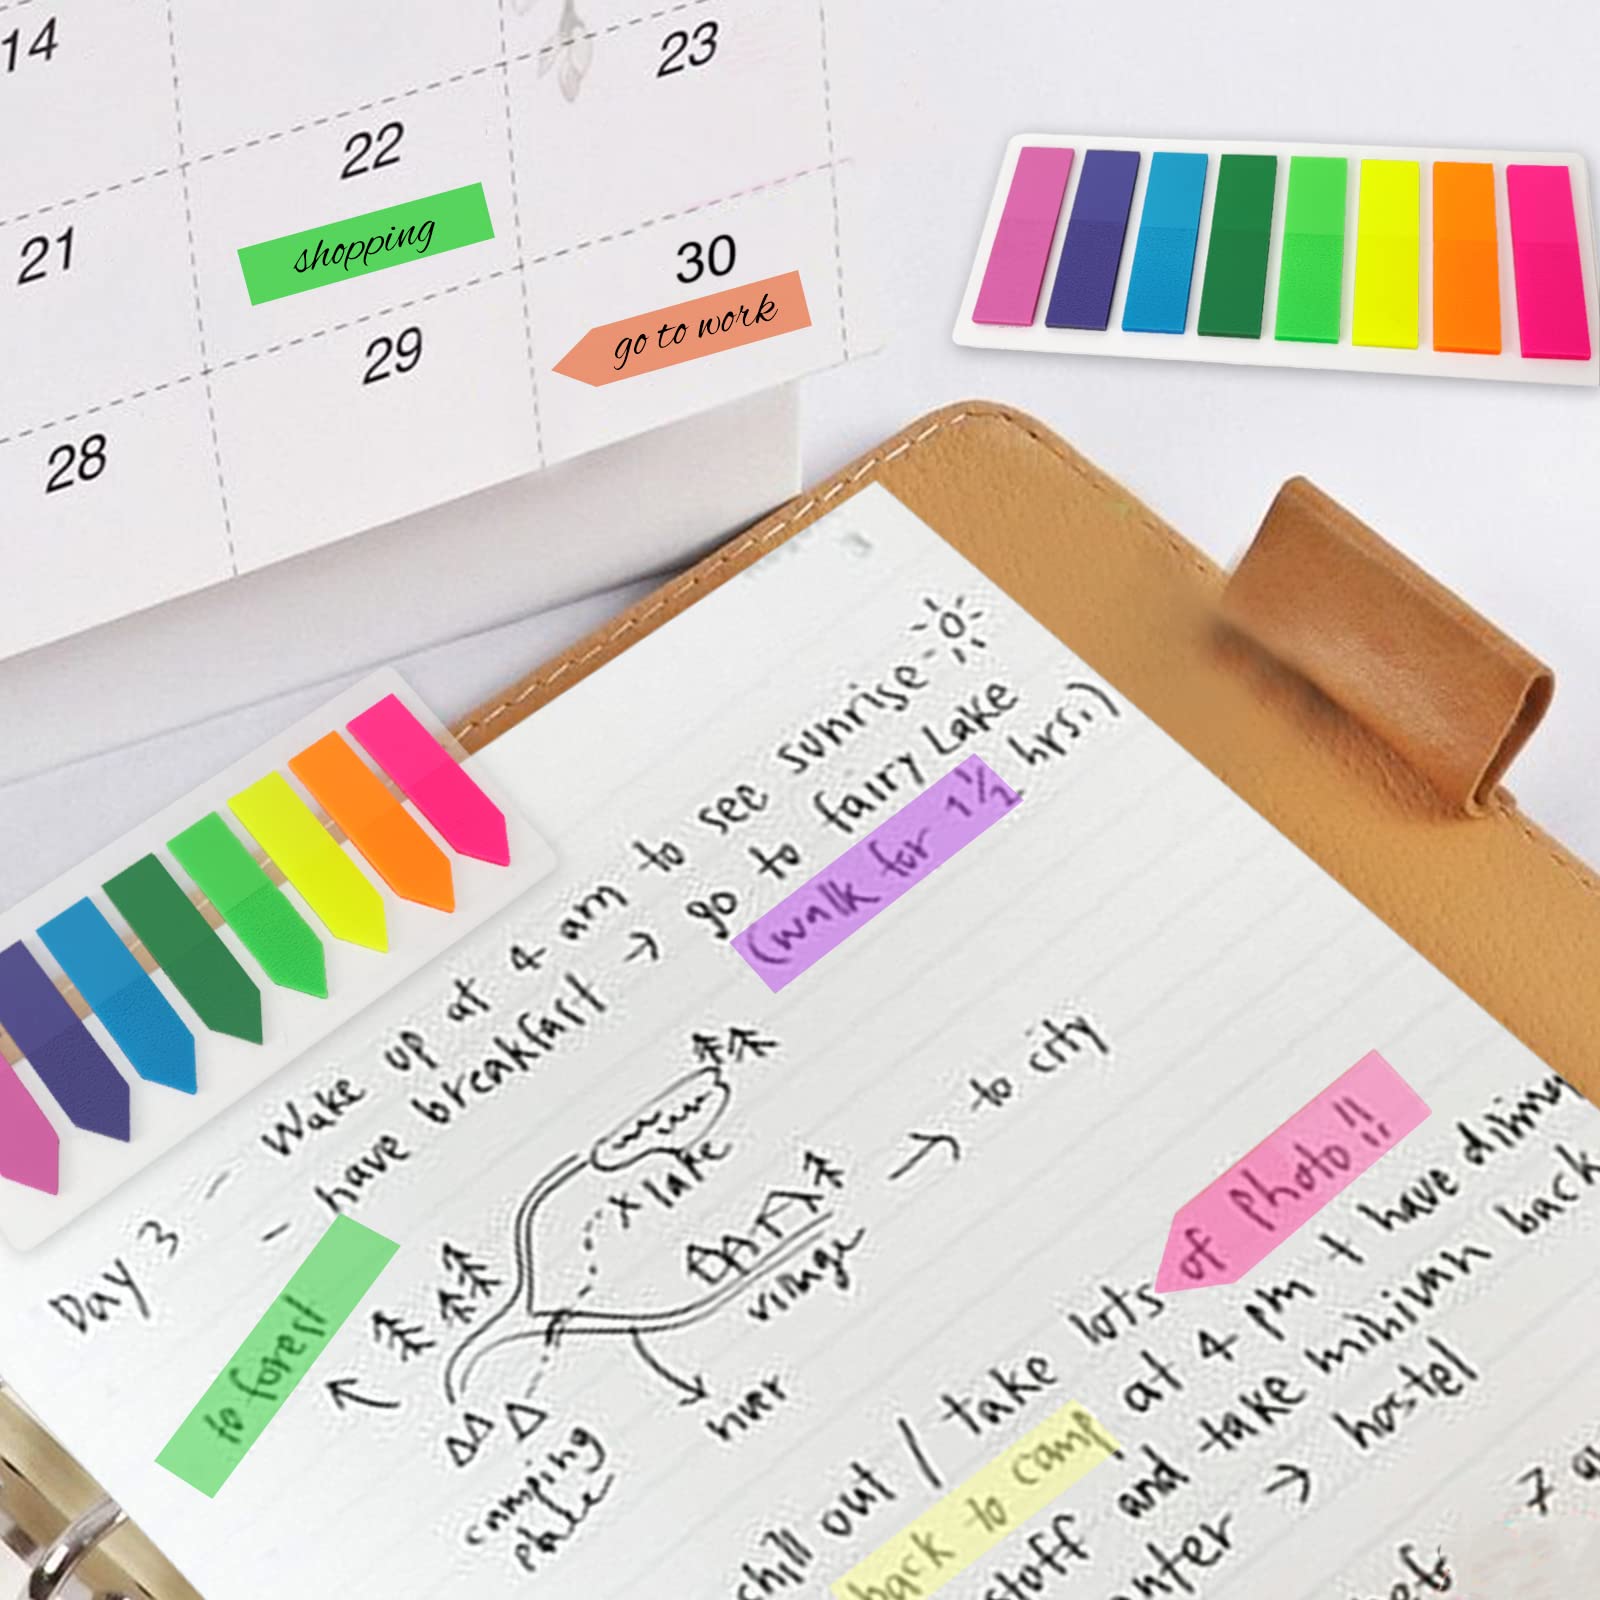 14
22
23
21
shopping
30
go to work
29
28
Day 3 - Wake up at 4 am to see sunrise
- have breakfast → go to fairy Lake
(walk for 1 1/2 hrs.)
→ to city
lake
village
to forest
river
camping
place
chill out / take lots of photo!!
back to camp at 4 pm + have dinner
stuff and take minivan back
→ hostel
7